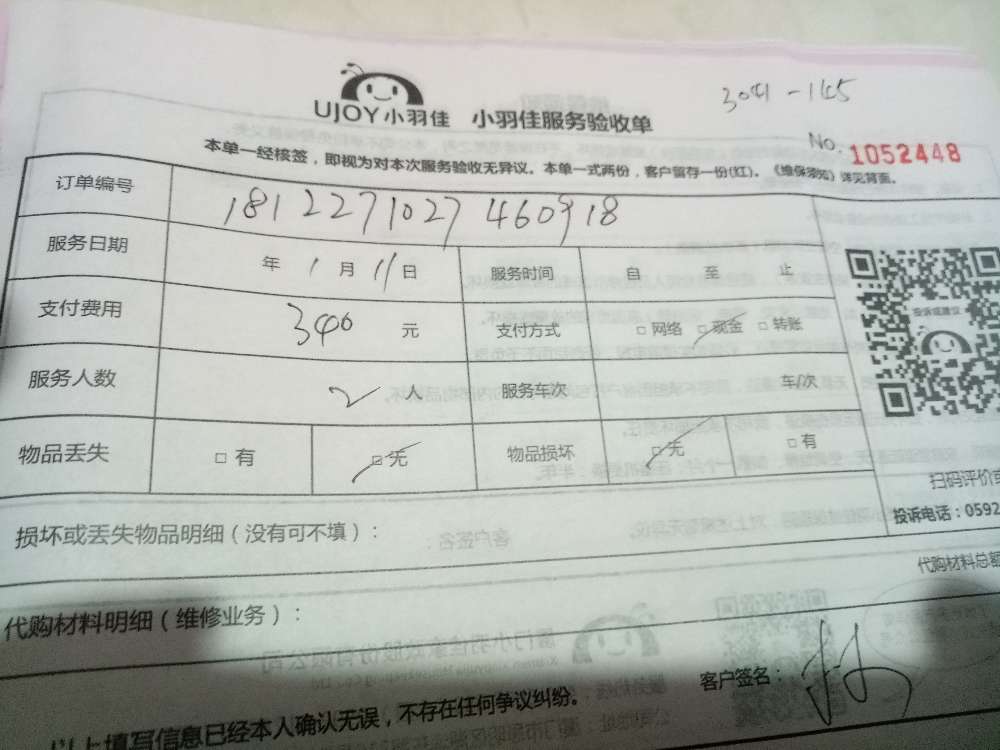 3041-145
UJOY小羽佳 小羽佳服务验收单
No. 1052448
本单一经核签，即视为对本次服务验收无异议。本单一式两份，客户留存一份(红)。《维保须知》详见背面。
订单编号 1812271027460918
服务日期 年 1 月 11 日 服务时间 自 至 止
支付费用 340 元 支付方式 □网络 □现金 □转账
投诉或建议
服务人数 2 人 服务车次 车/次
物品丢失 □有 □无 物品损坏 □无 □有
扫码评价或
投诉电话：0592
损坏或丢失物品明细（没有可不填）：
代购材料总额
代购材料明细（维修业务）：
客户签名：
以上填写信息已经本人确认无误，不存在任何争议纠纷。